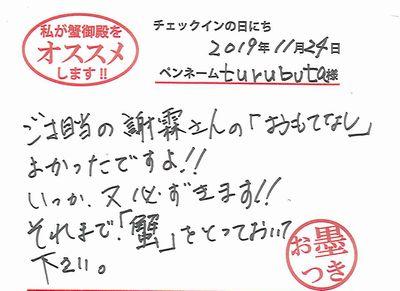 私が蟹御殿を
オススメ
します!!
チェックインの日にち
2019年11月24日
ペンネームturubuta様
ご担当の謝霖さんの「おもてなし」
よかったですよ!!
いつか、又必ずきます!!
それまで、「蟹」をとっておいて
下さい。
お墨
つき